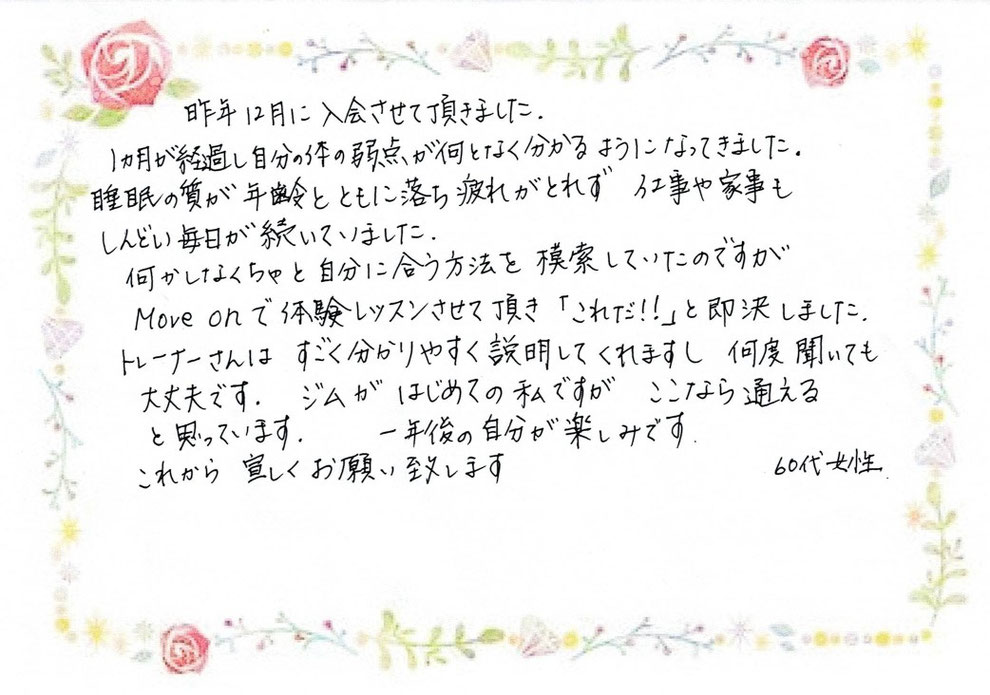 昨年12月に入会させて頂きました.
1ヵ月が経過し自分の体の弱点が何となく分かるようになってきました.
睡眠の質が年齢とともに落ち疲れがとれず 仕事や家事も
しんどい毎日が続いていました.
何かしなくちゃと自分に合う方法を模索していたのですが
Move onで体験レッスンさせて頂き「これだ!!」と即決しました.
トレーナーさんは すごく分かりやすく説明してくれますし 何度聞いても
大丈夫です. ジムがはじめての私ですが ここなら通える
と思っています. 一年後の自分が楽しみです.
これから宜しくお願い致します
60代女性.